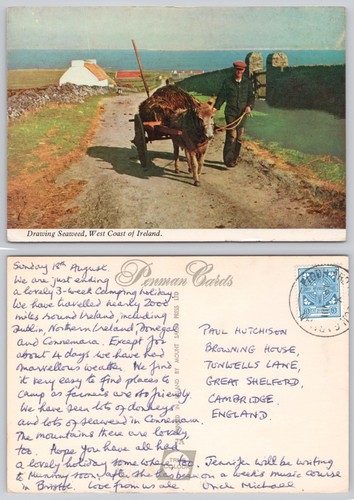 Drawing Seaweed, West Coast of Ireland.
Penman Cards
Sunday 18th August.
We are just ending
a lovely 3-week Camping holiday.
We have travelled nearly 2000
miles round Ireland, including
Dublin, Northern Ireland, Donegal
and Connemara. Except for
about 4 days we have had
marvellous weather. We find
it very easy to find places to
camp as farmers are so friendly.
We have seen lots of donkeys
and lots of seaweed in Connemara.
The mountains there are lovely,
too. Hope you have all had
a lovely holiday somewhere, too. Jennifer will be writing
to Mummy soon, after she has been on a week's music course
in Bristol. Love from us all Uncle Michael
PAUL HUTCHISON
BROWNING HOUSE,
TUNWELLS LANE,
GREAT SHELFORD,
CAMBRIDGE
ENGLAND.